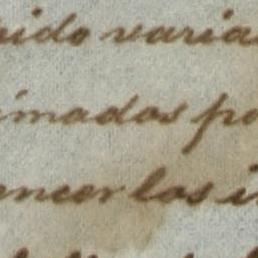 uido varia
imados po
encer los i